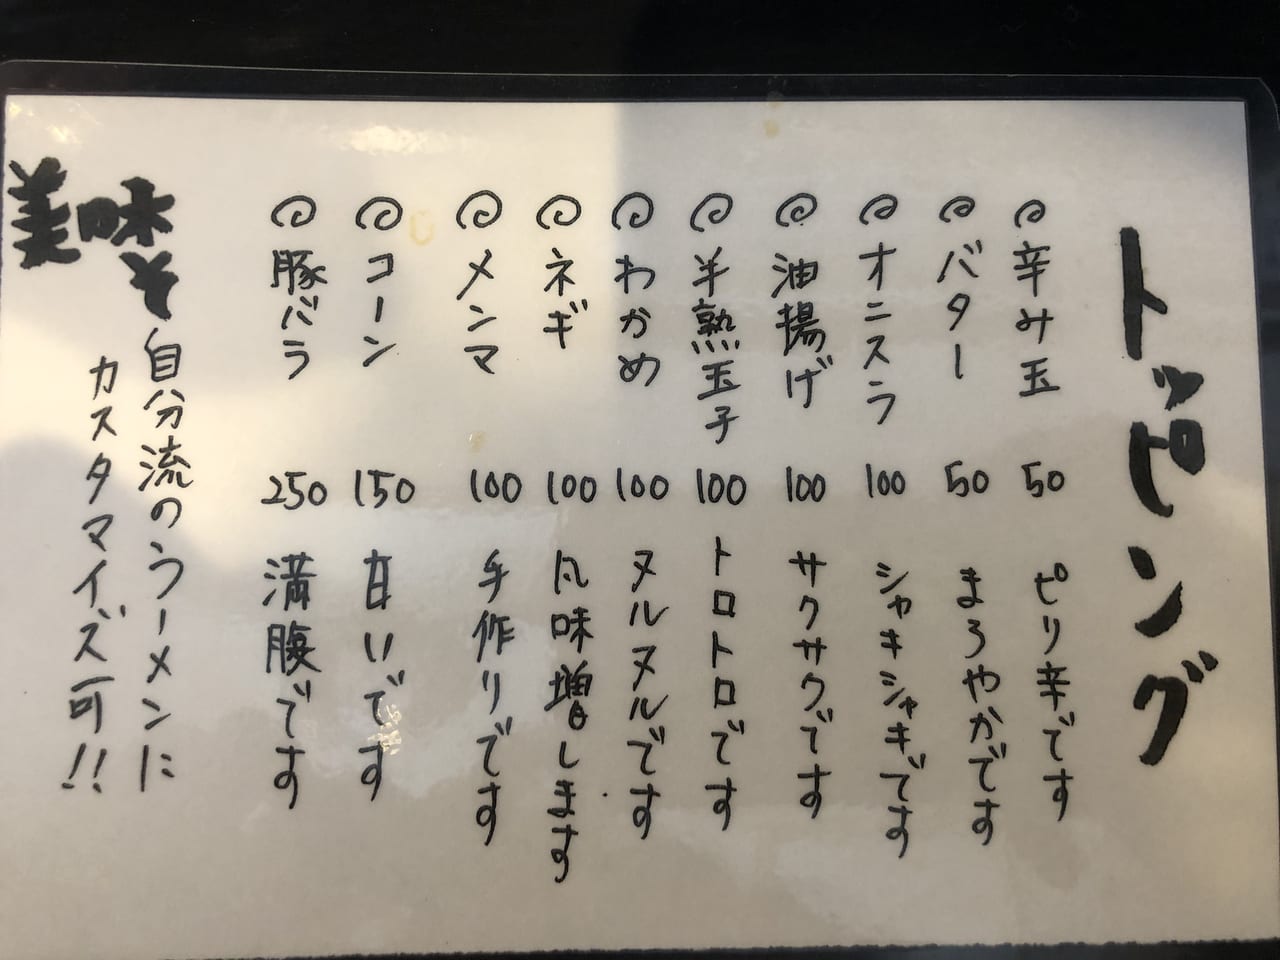 トッピング
辛み玉 50 ピリ辛です
バター 50 まろやかです
オニスラ 100 シャキシャキです
油揚げ 100 サクサクです
半熟玉子 100 トロトロです
わかめ 100 ヌルヌルです
ネギ 100 風味増します
メンマ 100 手作りです
コーン 150 甘いです
豚バラ 250 満腹です
自分流のラーメンに
カスタマイズ可!!
美味そ